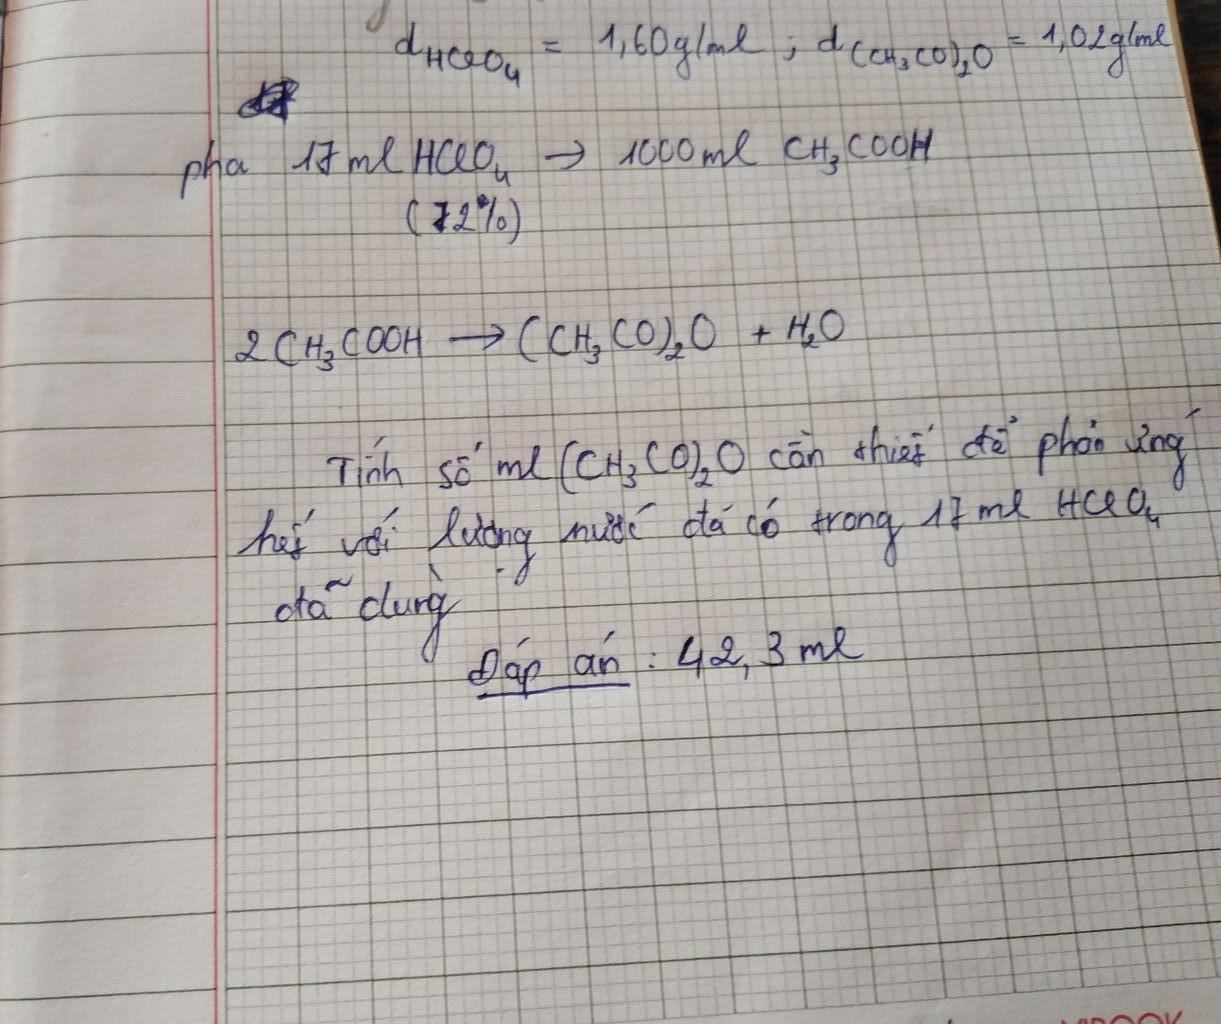 d HClO₄ = 1,60g/ml ; d (CH₃CO)₂O = 1,02g/ml
pha 17ml HClO₄ → 1000ml CH₃COOH
(72%)
2CH₃COOH → (CH₃CO)₂O + H₂O
Tính số ml (CH₃CO)₂O cần thiết để phản ứng
hết với lượng nước đá có trong 17ml HClO₄
đã dùng
Đáp án : 42,3 ml